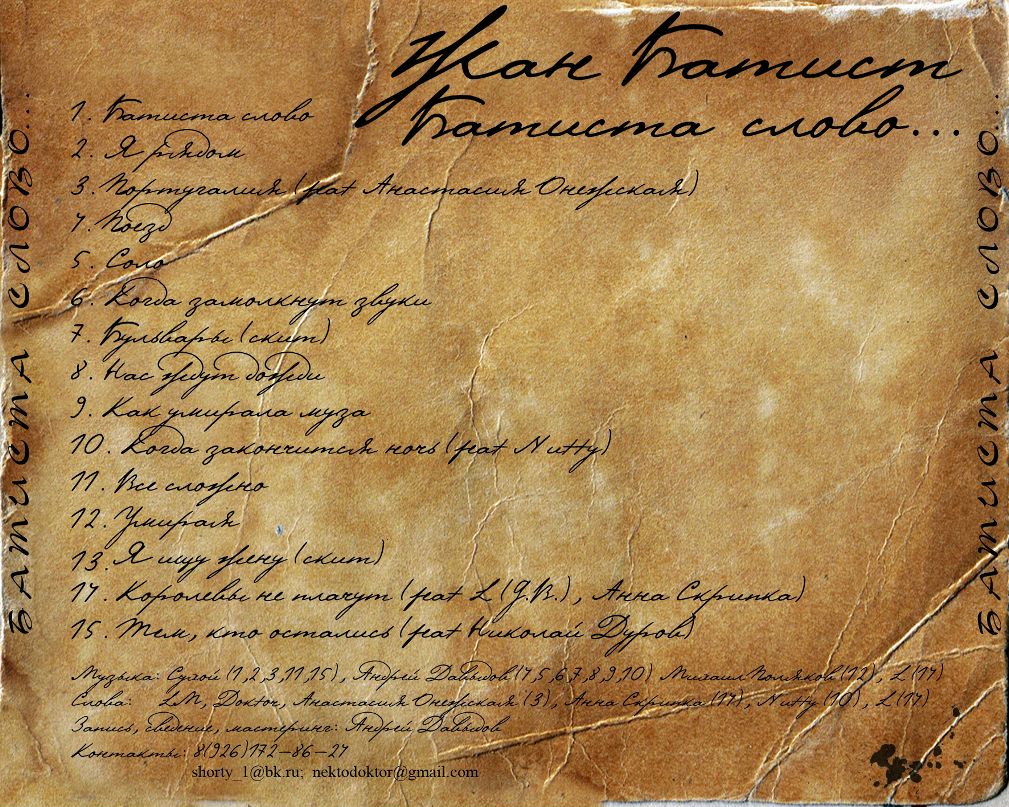 Жан Батист
Батиста слово...
1. Батиста слово
2. Я рядом
3. Португалия (feat Анастасия Онежская)
4. Поезд
5. Соло
6. Когда замолкнут звуки
7. Бульвары (скит)
8. Нас ждут дожди
9. Как умирала муза
10. Когда закончится ночь (feat Nutty)
11. Все сложно
12. Умирая
13. Я ищу жену (скит)
14. Королевы не плачут (feat L (G.B.), Анна Скрипка)
15. Тем, кто остались (feat Николай Дуров)
Музыка: Сухой (1,2,3,11,15), Андрей Давыдов (4,5,6,7,8,9,10) Михаил Поляков (12), L (14)
Слова: LM, Doктor, Анастасия Онежская (3), Анна Скрипка (14), Nutty (10), L (14)
Запись, сведение, мастеринг: Андрей Давыдов
Контакты: 8(926)172-86-24
shorty_1@bk.ru; nektodoktor@gmail.com
Батиста слово...
Батиста слово...